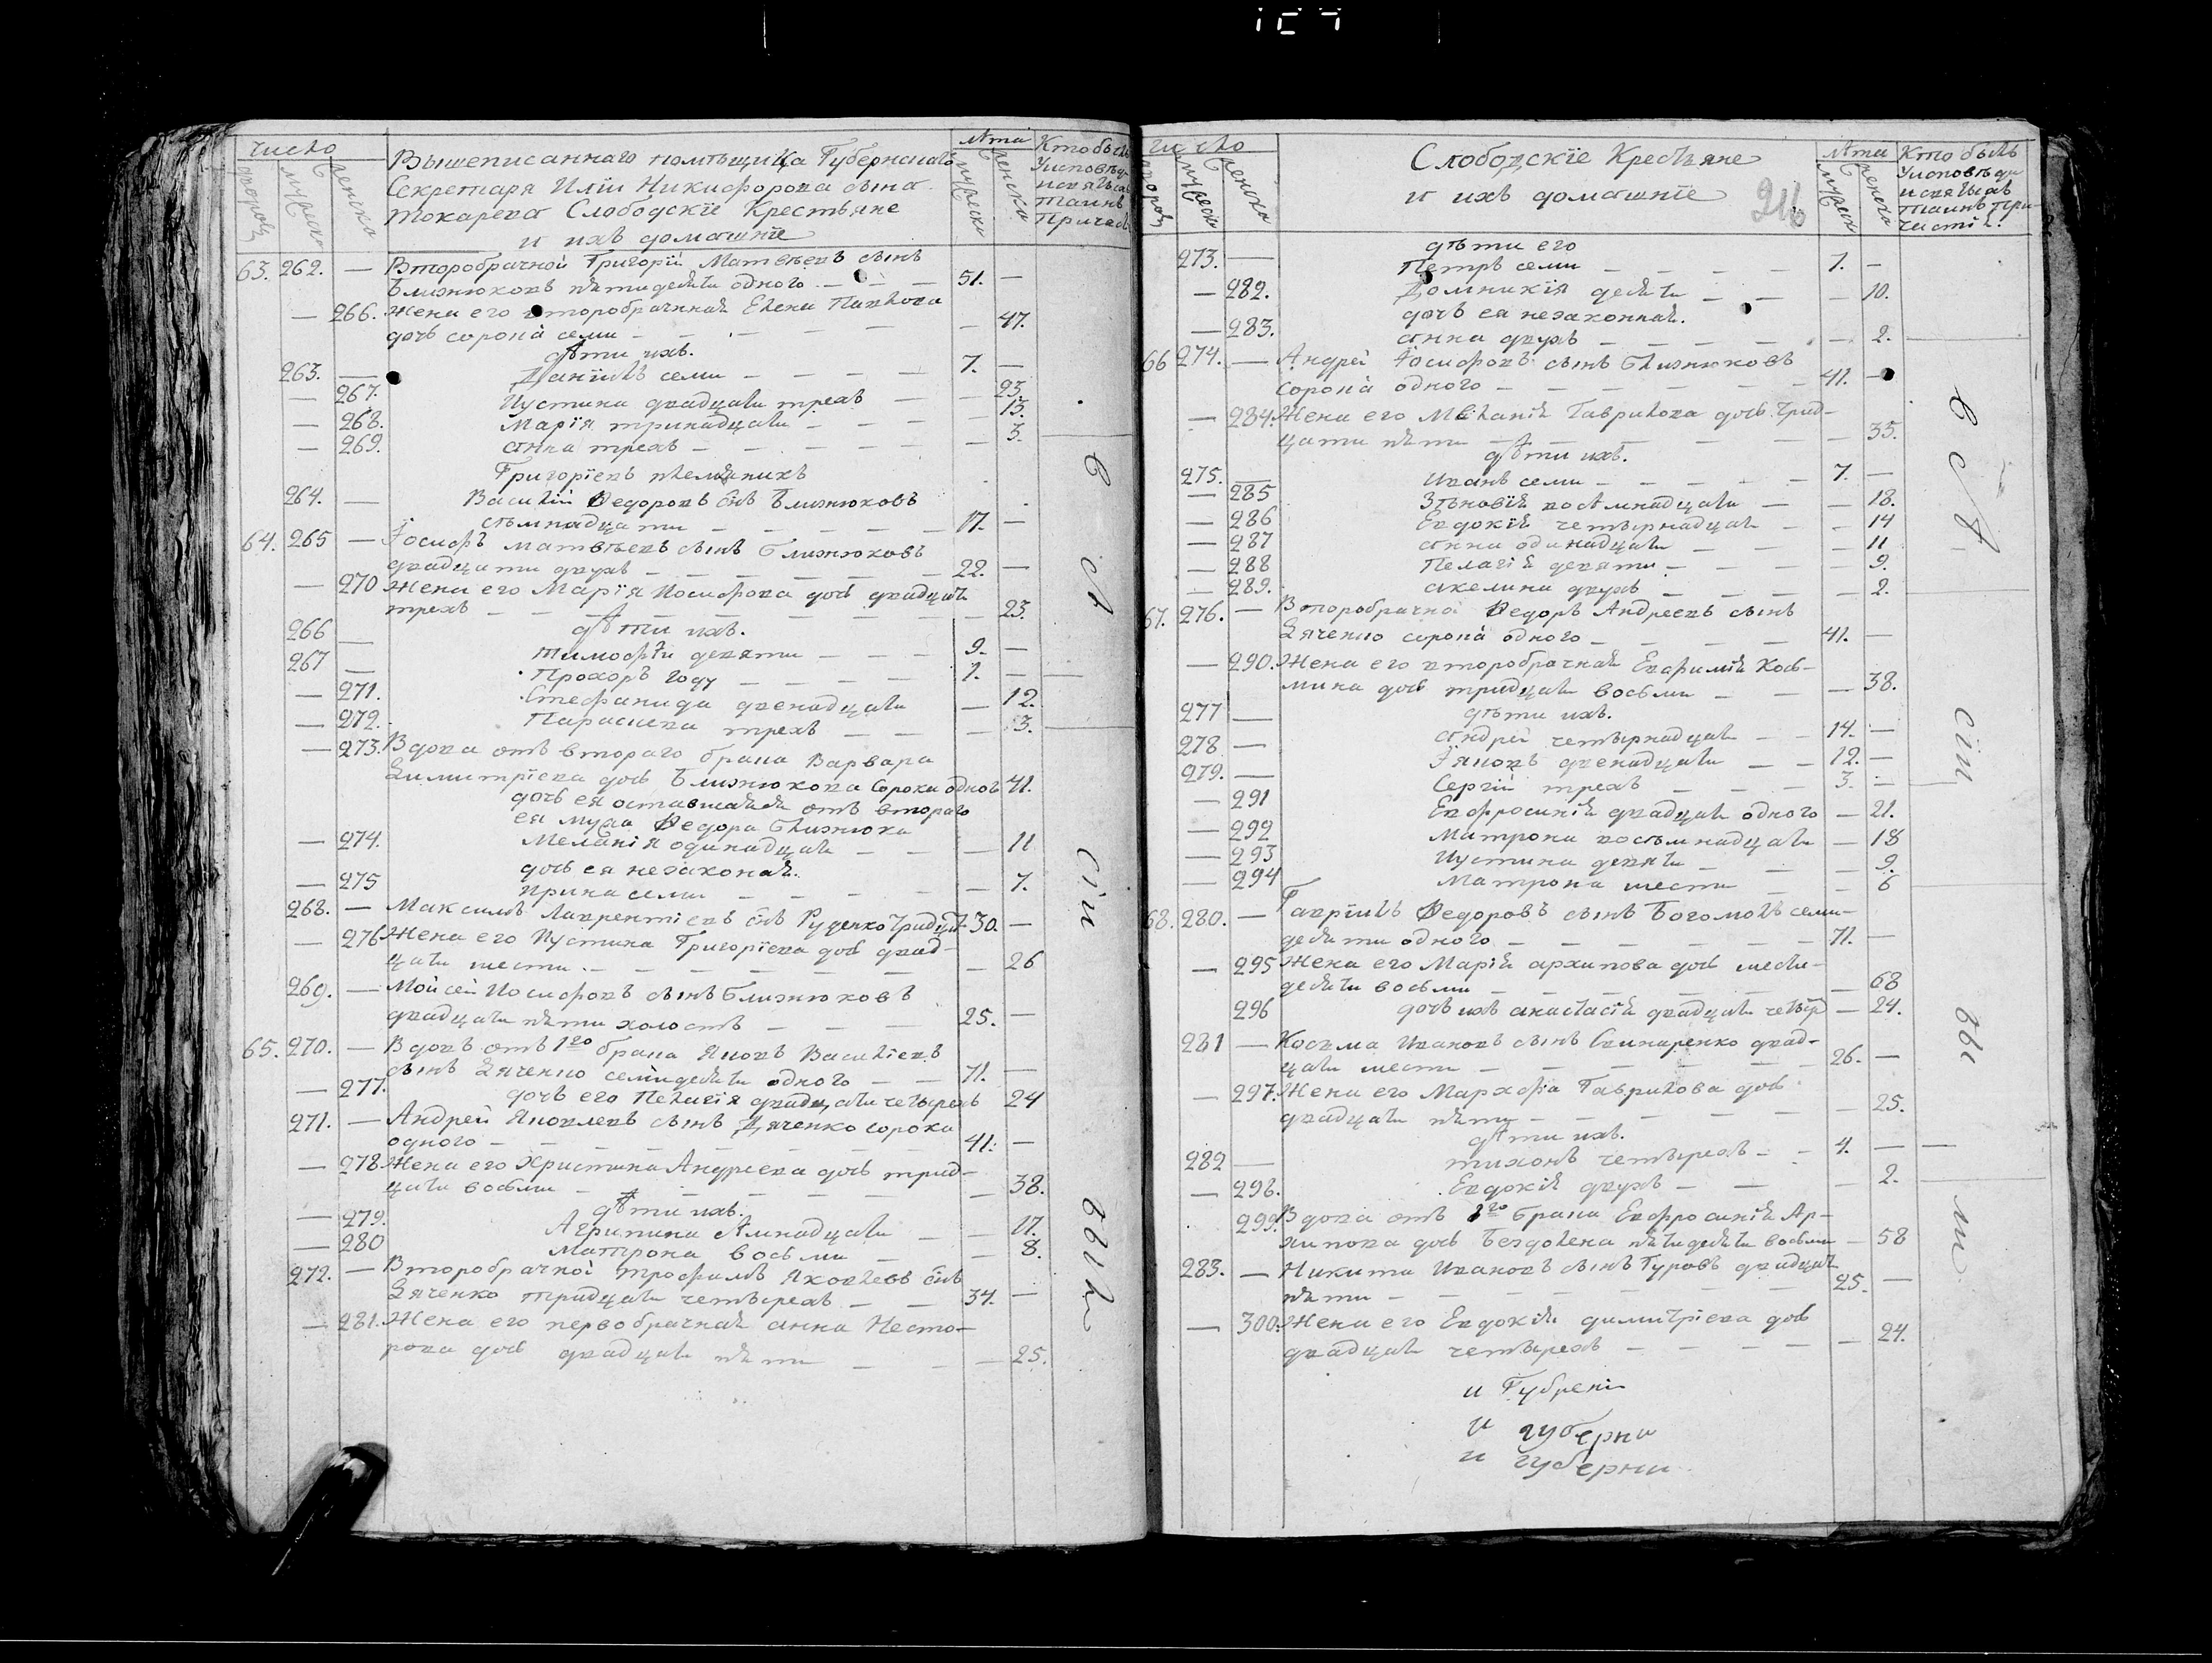 число
лѣта
Кто былъ
Вышеписаннаго помѣщика Губернскаго
Секретаря Иліи Никифорова сына
Токарева Слободскїе Крестьяне
и ихъ домашнїе
дворовъ мужеска женска
мужеска женска
63. 262. — Второбрачной Григорїй Матвѣевъ сынъ
Близнюковъ пятидесяти одного — 51. —
— 266. Жена его второбрачная Елена Павлова
дочь сорока семи — 47.
дѣти ихъ.
263. — Данїилъ семи — 7. —
— 267. Иустина двадцати трехъ — 23.
— 268. Марїя тринадцати — 13.
— 269. Анна трехъ — 3.
Григорїевъ племянникъ
264. — Василїй Ѳедоровъ снъ Близнюковъ
семнадцати — 17. —
64. 265 — Їосифъ Матвѣевъ сынъ Близнюковъ
двадцати двухъ — 22. —
— 270 Жена его Марїя Иосифова дочь двадцати
трехъ — 23.
дѣти ихъ.
266 — Тимофѣй девяти — 9. —
267 — Прохоръ году — 1. —
— 271. Стефанида двенадцати — 12.
— 272. Параскева трехъ — 3.
— 273. Вдова отъ втораго брака Варвара
Димитрїева дочь Близнюкова сорока одного 41.
дочь ея оставшаяся отъ втораго
ея мужа Ѳедора Близнюка
— 274. Меланїя одинадцати — 11
дочь ея незаконая.
— 275 Ирина семи — 7.
268. — Максимъ Лаврентїевъ снъ Руденко тридцати 30. —
— 276 Жена его Иустина Григорїева дочь двад-
цати шести — 26
269. — Мойсей Иосифовъ сынъ Близнюковъ
двадцати пяти холостъ — 25. —
65. 270. — Вдовъ отъ 1го брака Яковъ Василїевъ
сынъ Дяченко семидесяти одного — 71. —
— 277. дочь его Пелагїя двадцати четырехъ 24
271. — Андрей Яковлевъ сынъ Дяченко сорока
одного — 41. —
— 278. Жена его Христина Андреева дочь трид-
цати восьми — 38.
дѣти ихъ.
— 279. Агрипина семнадцати — 17.
— 280 Матрона восьми — 8.
272. — Второбрачной Трофимъ Яковлевъ снъ
Дяченко тридцати четырехъ — 34. —
— 281. Жена его первобрачная Анна Несто-
рова дочь двадцати пяти — 25.
число
Слободскїе Крестьяне
и ихъ домашнїе
216
лѣта
Кто былъ
дворовъ мужеска женска
мужеска женска
дѣти его
273. — Петръ семи — 7. —
— 282. Домникїя десяти — 10.
дочь ея незаконная.
— 283. Анна двухъ — 2.
66 274. — Андрей Їосифовъ сынъ Близнюковъ
сорока одного — 41. —
— 284. Жена его Меланїя Гаврилова дочь трид-
цати пяти — 35.
дѣти ихъ.
275. — Иванъ семи — 7. —
— 285 Зѣновїя восемнадцати — 18.
— 286 Евдокїя четырнадцати — 14
— 287 Анна одинадцати — 11
— 288 Пелагїя девяти — 9.
— 289. Акелина двухъ — 2.
67. 276. — Второбрачной Ѳедоръ Андреевъ сынъ
Дяченко сорока одного — 41. —
— 290. Жена его второбрачная Евфимїя Кось-
мина дочь тридцати восьми — 38.
дѣти ихъ.
277 — Андрей четырнадцати — 14. —
278 — Їяковъ двенадцати — 12. —
279. — Сергїй трехъ — 3. —
— 291 Евфросинїя двадцати одного — 21.
— 292 Матрона восемнадцати — 18
— 293 Иустина девяти — 9.
— 294 Матрона шести — 6
68. 280. — Гаврїилъ Ѳедоровъ сынъ Богомолъ семи-
десяти одного — 71. —
— 295 Жена его Марїя Архипова дочь шести-
десяти восьми — 68
296 дочь ихъ Анастасїя двадцати четыр — 24.
281 — Косьма Ивановъ сынъ Скинаренко двад-
цати шести — 26. —
— 297. Жена его Марфа Гаврилова дочь
двадцати пяти — 25.
дѣти ихъ.
282 — Тихонъ четырехъ — 4. —
— 298. Евдокїя двухъ — 2.
299. Вдова отъ 1го брака Евфросинїя Ар-
хипова дочь пятидесяти восьми — 58
283. — Никита Ивановъ сынъ Гуровъ двадцати
пяти — 25. —
— 300. Жена его Евдокїя Димитрїева дочь
двадцати четырехъ — 24.
и Губрени
и губерни
и губерни